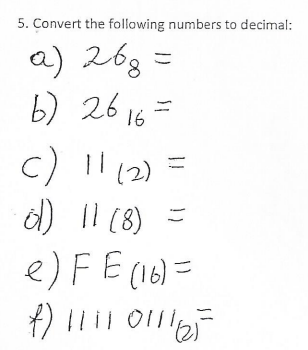 5. Convert the following numbers to decimal:
a) 26₈ =
b) 26 ₁₆ =
c) 11 (2) =
d) 11 (8) =
e) FE (16) =
f) 1111 0111(2) =